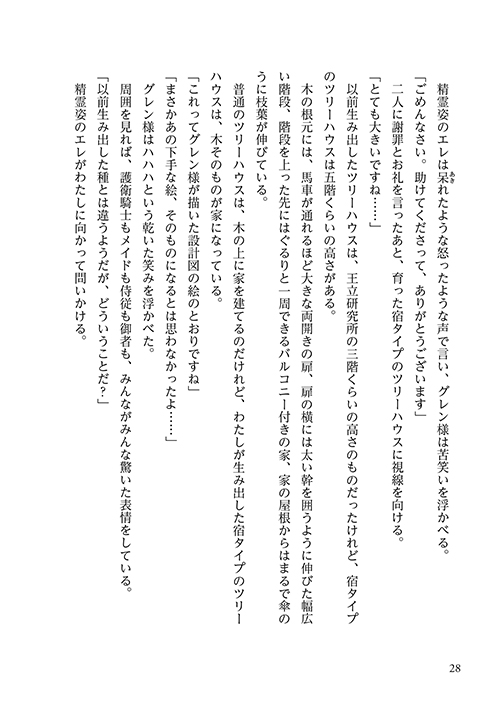 精霊姿のエレは呆れたような怒ったような声で言い、グレン様は苦笑いを浮かべる。
あき
「ごめんなさい。助けてくださって、ありがとうございます」
二人に謝罪とお礼を言ったあと、育った宿タイプのツリーハウスに視線を向ける。
「とても大きいですね……」
以前生み出したツリーハウスは、王立研究所の三階くらいの高さのものだったけれど、宿タイプ
のツリーハウスは五階くらいの高さがある。
木の根元には、馬車が通れるほど大きな両開きの扉、扉の横には太い幹を囲うように伸びた幅広
い階段、階段を上った先にはぐるりと一周できるバルコニー付きの家、家の屋根からはまるで傘の
うに枝葉が伸びている。
普通のツリーハウスは、木の上に家を建てるのだけれど、わたしが生み出した宿タイプのツリー
ハウスは、木そのものが家になっている。
「これってグレン様が描いた設計図の絵のとおりですね」
「まさかあの下手な絵、そのものになるとは思わなかったよ……」
グレン様はハハハという乾いた笑みを浮かべた。
周囲を見れば、護衛騎士もメイドも侍従も御者も、みんながみんな驚いた表情をしている。
「以前生み出した種とは違うようだが、どういうことだ？」
精霊姿のエレがわたしに向かって問いかける。
28